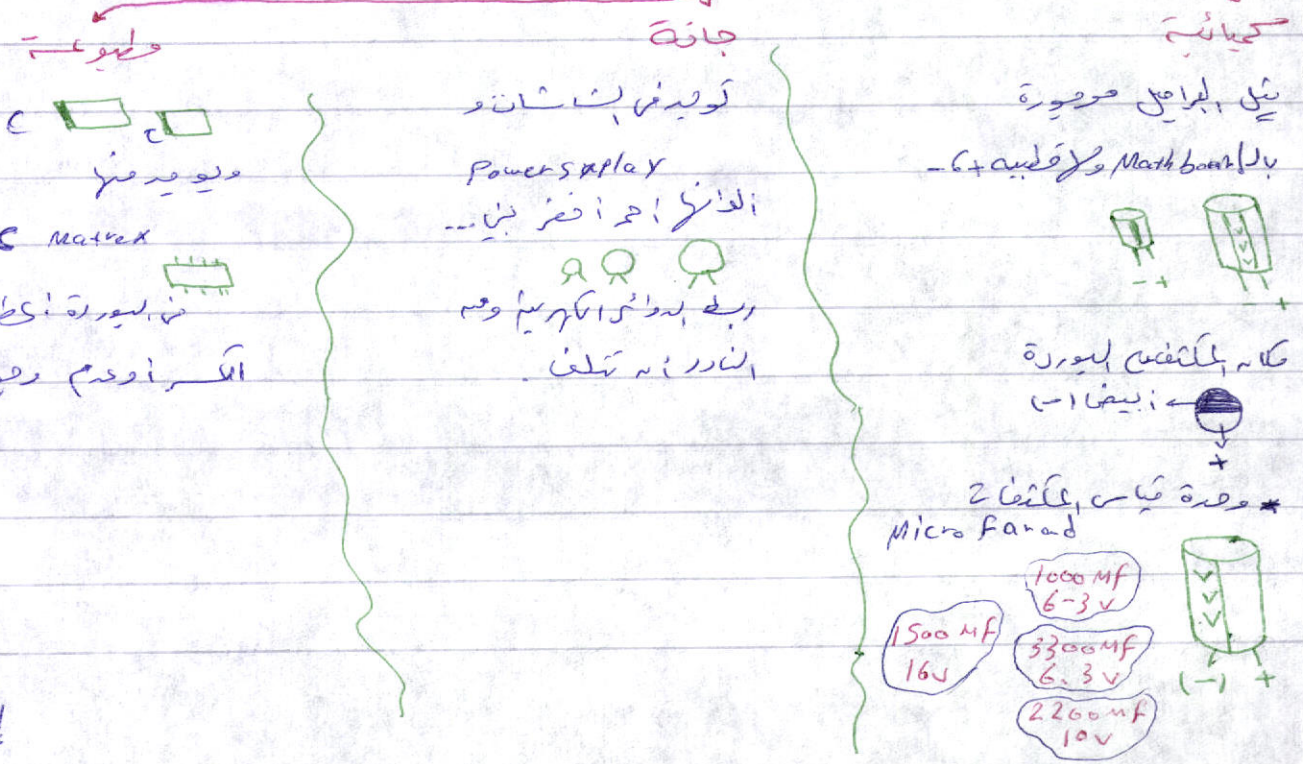 كميائية
مثل البراميل موجودة
بال Mathboard ولا قطبيه + 6 -
- +
- +
مكان المكثف على البوردة
أبيض (-)
+
* وحدة قياس المكثف 2
Micro Farad
1000 Mf
6-3 v
1500 Mf
16v
3300 Mf
6.3 v
2200 mf
10v
(-) +
جافة
توجد في الشاشات و
Powersuplay
الوانها أحمر أخضر بني...
ربط الدوائر الكهربية ومن
النادر أن تتلف.
مطبوعة
C C
ويوجد منها
C Matrex
في البوردة
الكسر أو عدم